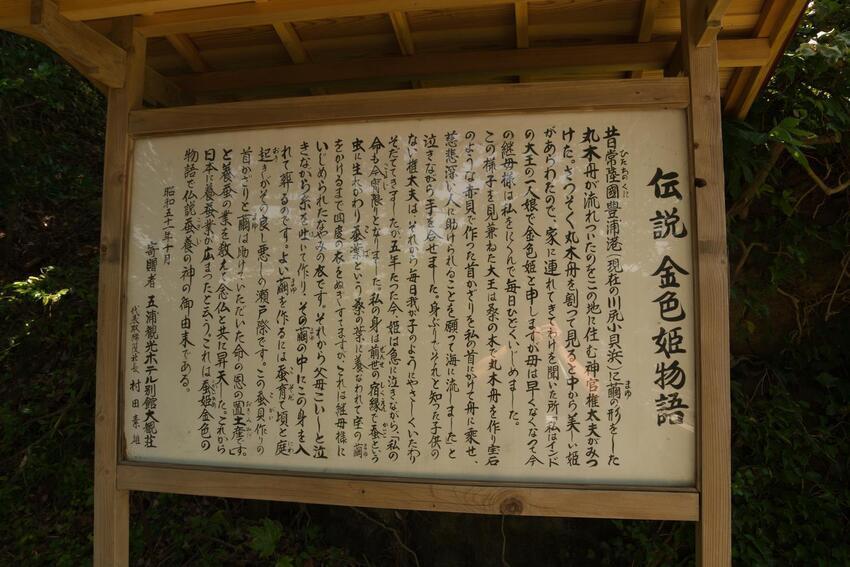 伝説 金色姫物語
昔常陸國豊浦港(現在の川尻小貝浜)に繭の形をした
丸木舟が流れついたのをこの地に住む神官権太夫がみつ
けた。さっそく丸木舟を割って見ると中から美しい姫
があらわたので、家に連れてきてわけを聞いた所「私はインド
の大王の一人娘で金色姫と申しますが母は早くなくなって今
の継母様は私をにくんで毎日ひどくいじめました。
この様子を見兼ねた大王は桑の木で丸木舟を作り宝石
のような赤貝で作った首かざりを私の首にかけて舟に乗せ、
慈悲深い人に助けられることを願って海に流しました」と
泣きながら手を合せました。身ぶりでそれと知った子供の
ない権太夫は、それから毎日我が子のようにやさしくいたわり
そだててきましたが五年たった今、姫は急に泣きながら、「私の
命も今宵限りとなりました。私の身は前世の宿縁で蚕という
虫に生れかわり蚕業という桑の葉に養なわれて座の繭
をかけるまで四度の衣をぬぎすてますが、これは継母様に
いじめられたなやみの衣です。それから父母こいしと泣
きながら糸を吐いて作り、その繭の中にこの身を入
れて葬るのです。よい繭を作るには蚕育て頃と庭
起きがその良し悪しの瀬戸際です。この蚕貝作りの
首かざりと繭は助けていただいた命の恩の置土産です。」
と養蚕の業を教えて念仏と共に昇天した。これから
日本に養蚕業が広まったと云う。これは蚕姫金色の
物語で仏説蚕養の神の御由来である。
昭和五十一年十月
寄贈者 五浦観光ホテル別館大観荘
代表取締役社長 村田